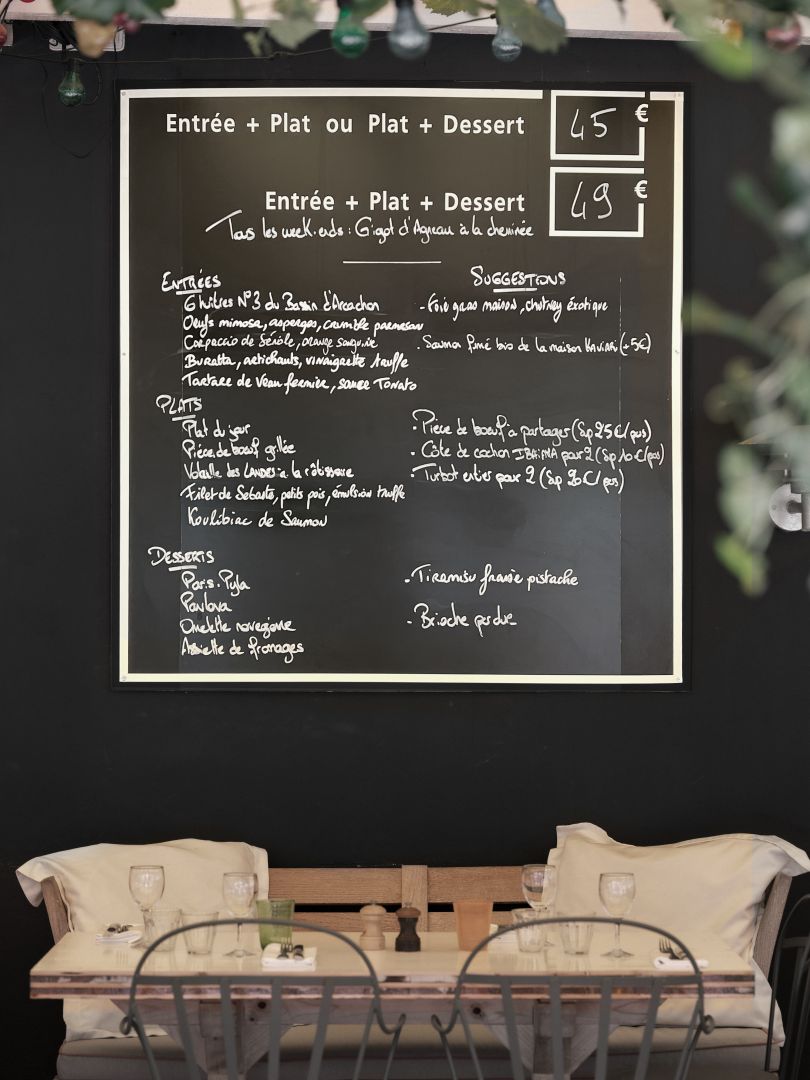 Entrée + Plat ou Plat + Dessert 45 €
Entrée + Plat + Dessert 49 €
Tous les week.ends : Gigot d'Agneau à la cheminée
ENTRÉES
6 huîtres N°3 du Bassin d'Arcachon
Oeufs mimosa, asperges, crumble parmesan
Carpaccio de Sériole, orange sanguine
Buratta, artichauts, vinaigrette truffe
Tartare de Veau fermier, sauce Tonato
SUGGESTIONS
- Foie gras maison, chutney exotique
. Saumon fumé bio de la maison KAVIARI (+5€)
PLATS
Plat du jour
Pièce de boeuf grillée
Volaille des LANDES à la rôtisserie
Filet de Sebaste, petits pois, émulsion truffe
Koulibiac de Saumon
. Pièce de boeuf à partager (Sup 25€/pers)
. Côte de cochon IBAIAMA pour 2 (Sup 10€/pers)
. Turbot entier pour 2 (Sup 20€/pers)
DESSERTS
Paris.Pyla
Pavlova
Omelette norvegienne
Assiette de fromages
. Tiramisu fraise pistache
. Brioche perdue